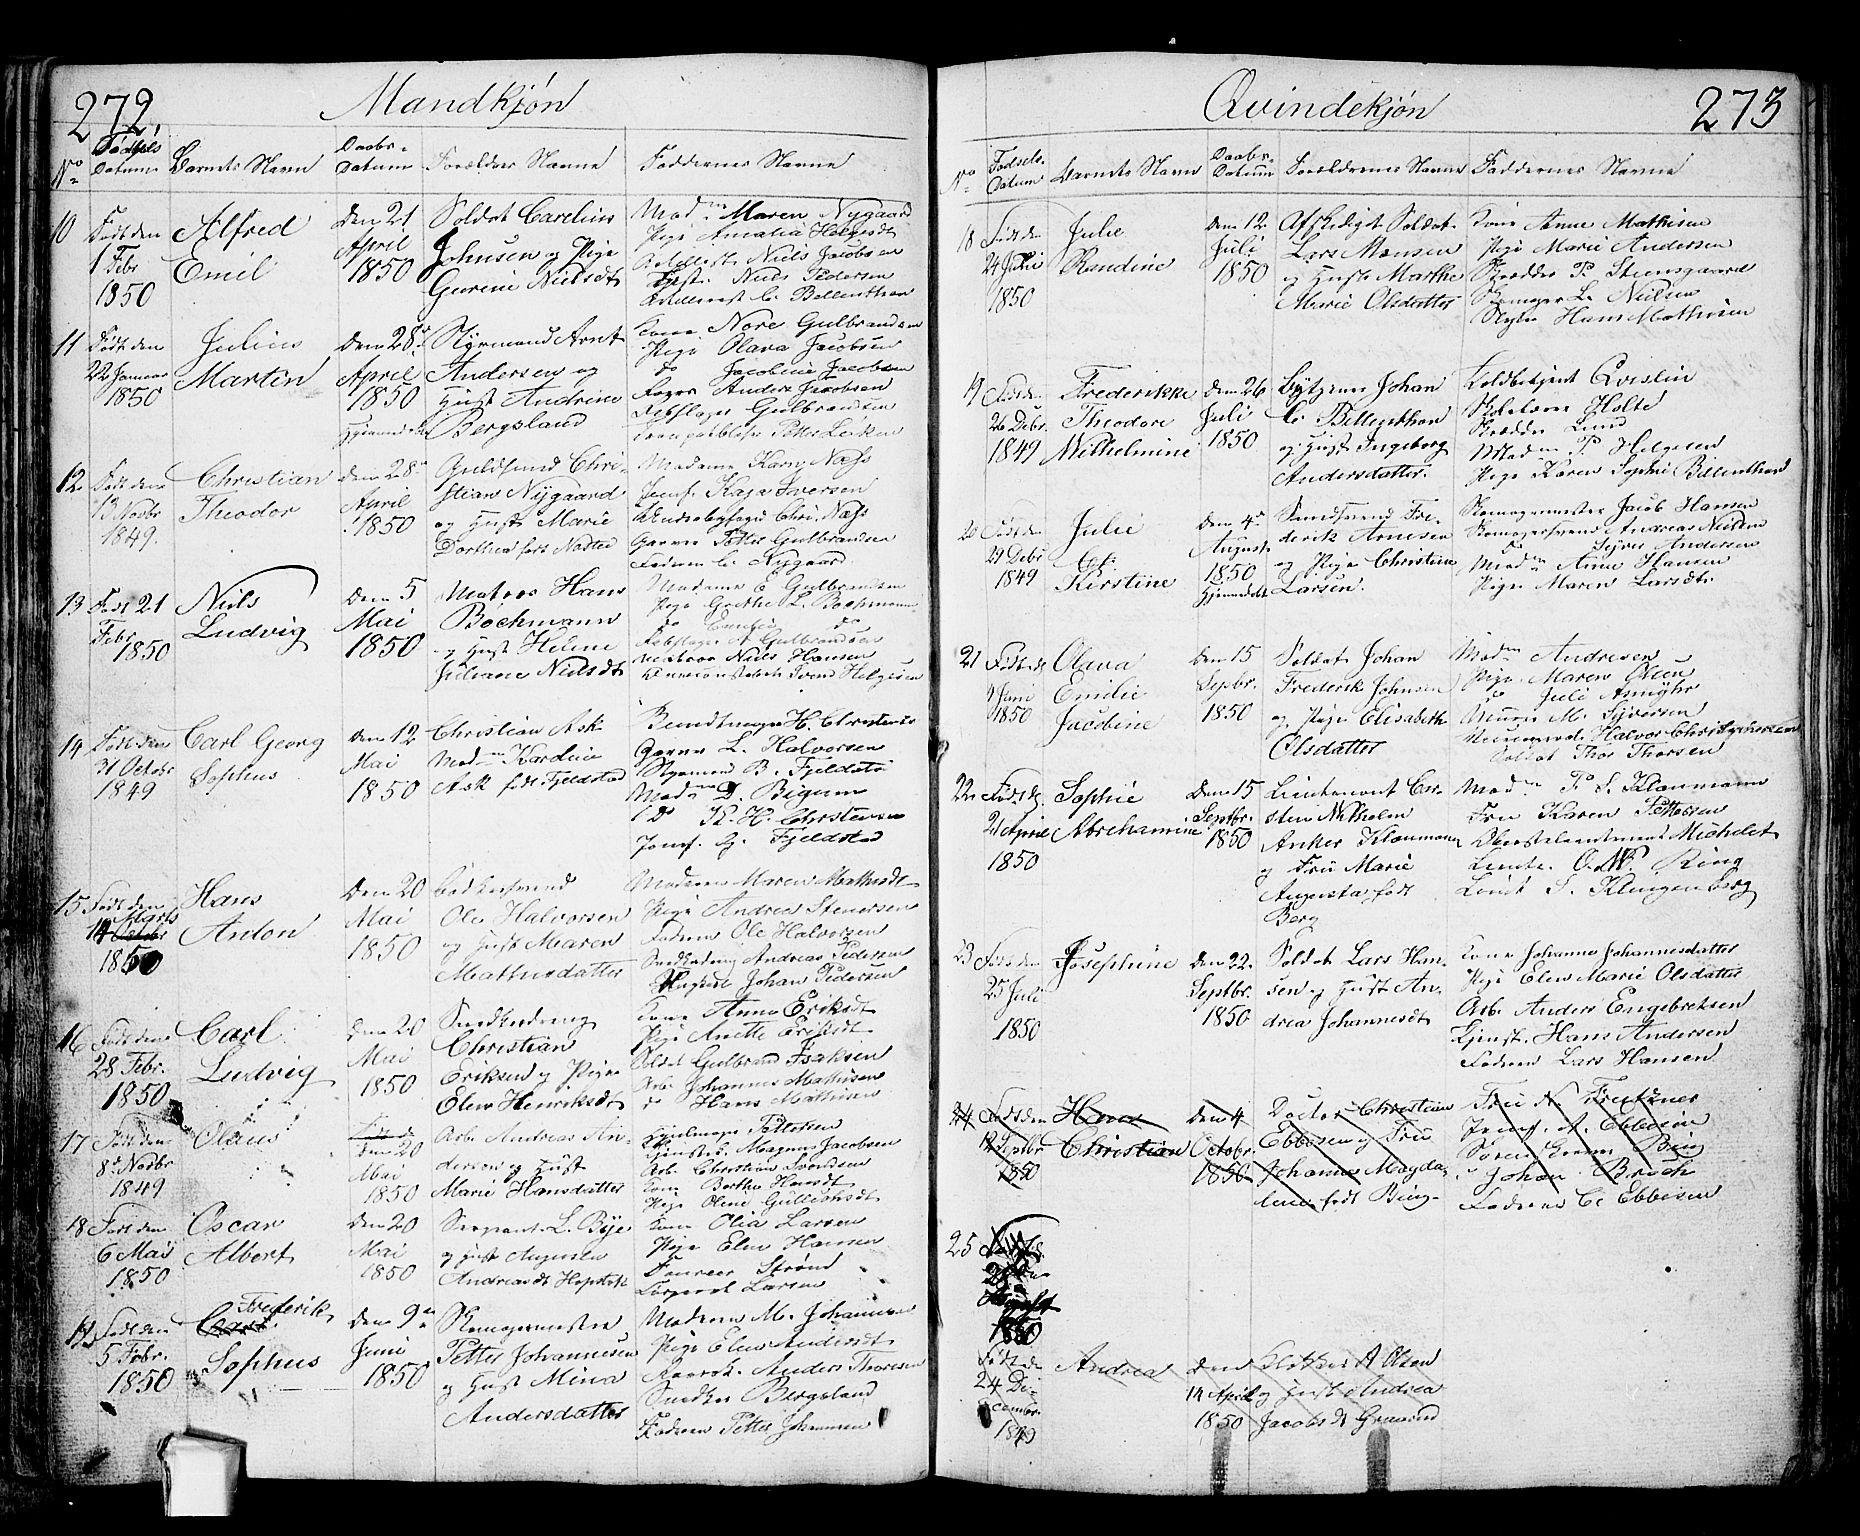 272.
Mandkjøn
No
Fødsels Datum
Barnets Navn
Daabs-Datum
Forældres Navne
Faddernes Navne
10
Født den
1 Febr
1850
Alfred
Emil
den 21
April
1850
Soldat Carelius
Johnsen og Pige
Gurine Nielsdt
Madm Maren Nygaard
Pige Amalia
Niels Jacobsen
Niels Pedersen
C. Bellenthon
11
Født den
22 Januar
1850
Julius
Martin
den 28de
April
1850
Styrmand Arnt
Andersen og
Hust Andrine
Bergsland
Kone Nore Gulbrandsen
Pige Olava Jacobsen
do Jacobine Jacobsen
Anders Jacobsen
Rebslager Gulbrandsen
12
Født den
13 Novbr
1849.
Christian
Theodor
den 28de
April
1850
Guldsmed Chri-
stian Nygaard
og Hust Marie
Dorthea født Næsted
Madame Karen Næss
Jomf. Kaja Iversen
Chri. Næss
Garver Petter Gulbrandsen
Faderen C. Nygaard
13
Født 21
Febr
1850
Niels
Ludvig
den 5
Mai
1850
Matros Hans
Bochmann
og Hust Helene
Juliane Nielsdt
Madame E Gulbrandsen
Pige Grethe L. Bochmann
do Emilie do
Rebslager A Gulbrandsen
Niels Hansen
Svend Helgesen
14
Født den
31 Octobr
1849
Carl Georg
Sophus
den 12
Mai
1850
Christian Ask
Madm Kardine
Ask født Fjeldstad
Buntmager H. Christensen
Garver L. Halvorsen
Styrmand B. Fjeldstad
Madm D. Bigum
do K. H. Christensen
Jomf. G. Fjeldstad
15
Født den
Marts
14 Octobr
1850
Hans
Anton
den 20
Mai
1850
Bødkersvend
Ole Halvorsen
og Hust Maren
Mathisdatter
Madam Maren Mathisdt
Pige Andrea Stenersen
Faderen Ole Halvorsen
Snedkerdreng Andreas Pedersen
Johan Pedersen
16
Født den
28 Febr.
1850
Carl
Ludvig
den 20
Mai
1850
Snedkerdreng
Christian
Eriksen og Pige
Elen Henriksdt
Kone Anne Eriksdt
Pige Anette Eriksdt
Soldat Gulbrand Isaksen
Arb. Johannes Mathisen
do Hans Mathisen
17
Født den
8de Novbr
1849
Olaus
den 20
Mai
1850
Arb. Andreas An-
dersen og Hust
Marie Hansdatter
Hjulmager Pettersen
Tjenstk. Magnus Jacobsen
Arb. Christian Svendsen
Kone Berthe Hansdt
Pige Oline Gulliksdt
18
Født den
6 Mai
1850
Oscar
Albert
den 20
Mai
1850
Sergeant L. Bye
og Hust Augusta
Andreasdt Hopstok
Kone Olia Larsen
Pige Elen Hansen
Fourer Strøm
Corporal Larsen
19
Født den
5 Febr.
1850
Frederik
Carl
Sophus
den 9de
Juni
1850
Skomagermester
Petter Johannesen
og Hust Mina
Andersdatter
Madam M. Johannesen
Pige Elen Andersdt
Anders Thoresen
Snedker Bergsland
Faderen Petter Johannesen
Qvindekjøn
273
No
Fødsels-Datum
Barnets Navn
Daabs-Datum
Forældrenes Navne
Faddernes Navne
18
Født den
24 Juni
1850
Julie
Randine
den 12
Juli
1850
Afskediget Soldat
Lars Monsen
og Hust Marthe
Marie Olsdatter
Kone Anne Mathisen
Pige Marie Andersen
Skrædder P. Steensgaard
Skomager L. Nielsen
Hans Mathisen
19
Født den
26 Debr.
1849
Frederikke
Theodore
Wilhelmine
den 26
Juli
1850
Bytjener Johan
C. Bellenthon
og Hust Ingeborg
Andersdatter.
Toldbetjent Qvislin
Skolelærer Holte
Skrædder Lund
Madm P. Helgesen
Pige Karen Sophie Bellenthon
20
Født den
29 Debr
1849
Julie
Kirstine
den 4de
August
1850
Hjemmedøbt
Smedsvend Fre-
derik Arnesen
og Pige Christine
Larsen.
Skomagermester Jacob Hansen
Skomagersvend Andreas Nielsen
do Syver Andersen
Madm Anne Hansen
Pige Maren Larsdt.
21
Født d.
9 Juni
1850
Olava
Emilie
Jacobine
den 15
Septbr.
1850
Soldat Johan
Frederik Johnsen
og Pige Elisabeth
Olsdatter
Madm Andresen
Pige Maren Olsen
do Juli Asmyhr
Murer M. Syversen
Halvor Christophersen
Soldat Thor Thorsen
22
Født d.
21 April
1850
Sophie
Abrahamine
den 15
Septbr.
1850
Lieutenant Chri-
sten Wilhelm
Anker Kloumann
og Frue Marie
Augusta født
Berg
Madm P. S. Kloumann
Frue Karen Pettersen
Oberstleutnant Michelet
Lieutn. O. W. Ring
Lieut S. Klingenberg
23
Født den
25 Juli
1850
Josephine
den 22.
Septbr.
1850
Soldat Lars Han-
sen og Hust An-
drea Johannesdt
Kone Johanne Johannesdatter
Pige Elen Marie Olsdatter
Arb. Anders Engebretsen
Tjenst. Hans Andersen
Faderen Lars Hansen
24
Født den
12 Septbr
1850
Hans
Christian
den 4
Octobr.
1850
Doctor Christian
Ebbesen og Frue
Johanne Magda-
lene født Bing
Frue
Jomf. A. Ebbesen
Søren Bing
Johan Broch
Faderen C. Ebbesen
25
Født d.
28de
August
1850
Født den
24 De-
cembr.
1849
Andrea
den
14 April
1850
Klokker A Olsen
og Hust Andrea
Jacobsdt